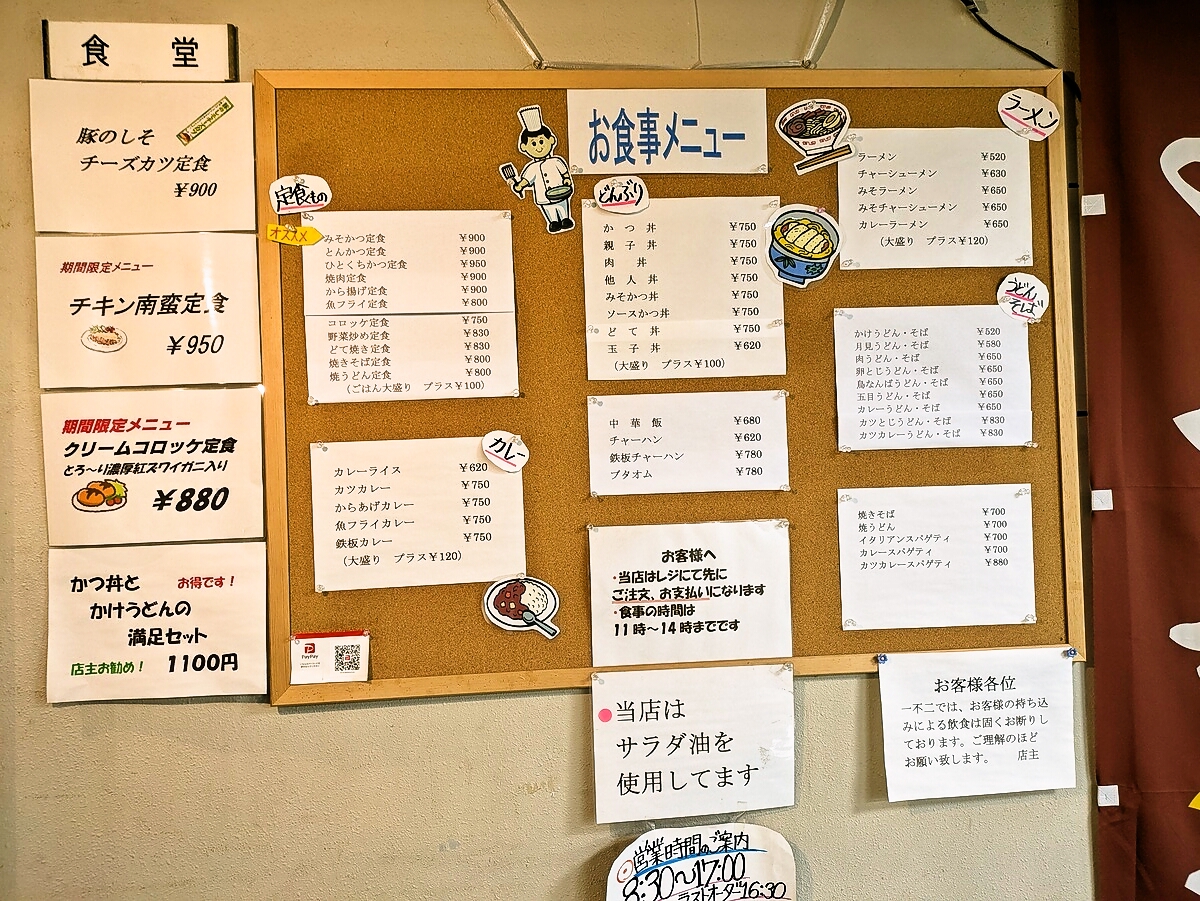 食堂
豚のしそ
チーズカツ定食
¥900
期間限定メニュー
チキン南蛮定食
¥950
期間限定メニュー
クリームコロッケ定食
とろ～り濃厚紅ズワイガニ入り
¥880
かつ丼と お得です！
かけうどんの
満足セット
店主お勧め！ 1100円
お食事メニュー
定食もの
オススメ
みそかつ定食 ¥900
とんかつ定食 ¥900
ひとくちかつ定食 ¥950
焼肉定食 ¥900
から揚げ定食 ¥900
魚フライ定食 ¥800
コロッケ定食 ¥750
野菜炒め定食 ¥830
どて焼き定食 ¥830
焼きそば定食 ¥800
焼うどん定食 ¥800
（ごはん大盛り プラス¥100）
カレー
カレーライス ¥620
カツカレー ¥750
からあげカレー ¥750
魚フライカレー ¥750
鉄板カレー ¥750
（大盛り プラス¥120）
PayPay
どんぶり
かつ丼 ¥750
親子丼 ¥750
肉丼 ¥750
他人丼 ¥750
みそかつ丼 ¥750
ソースかつ丼 ¥750
どて丼 ¥750
玉子丼 ¥620
（大盛り プラス¥100）
中華飯 ¥680
チャーハン ¥620
鉄板チャーハン ¥780
ブタオム ¥780
お客様へ
・当店はレジにて先に
ご注文、お支払いになります
・食事の時間は
11時～14時までです
当店は
サラダ油を
使用してます
営業時間のご案内
8:30～17:00
ラストオーダー16:30
ラーメン
ラーメン ¥520
チャーシューメン ¥630
みそラーメン ¥650
みそチャーシューメン ¥650
カレーラーメン ¥650
（大盛り プラス¥120）
うどん
そば
かけうどん・そば ¥520
月見うどん・そば ¥580
肉うどん・そば ¥650
卵とじうどん・そば ¥650
鳥なんばうどん・そば ¥650
五目うどん・そば ¥650
カレーうどん・そば ¥650
カツとじうどん・そば ¥830
カツカレーうどん・そば ¥830
焼きそば ¥700
焼うどん ¥700
イタリアンスパゲティ ¥700
カレースパゲティ ¥700
カツカレースパゲティ ¥880
お客様各位
一不二では、お客様の持ち込
みによる飲食は固くお断りし
ております。ご理解のほど
お願い致します。 店主